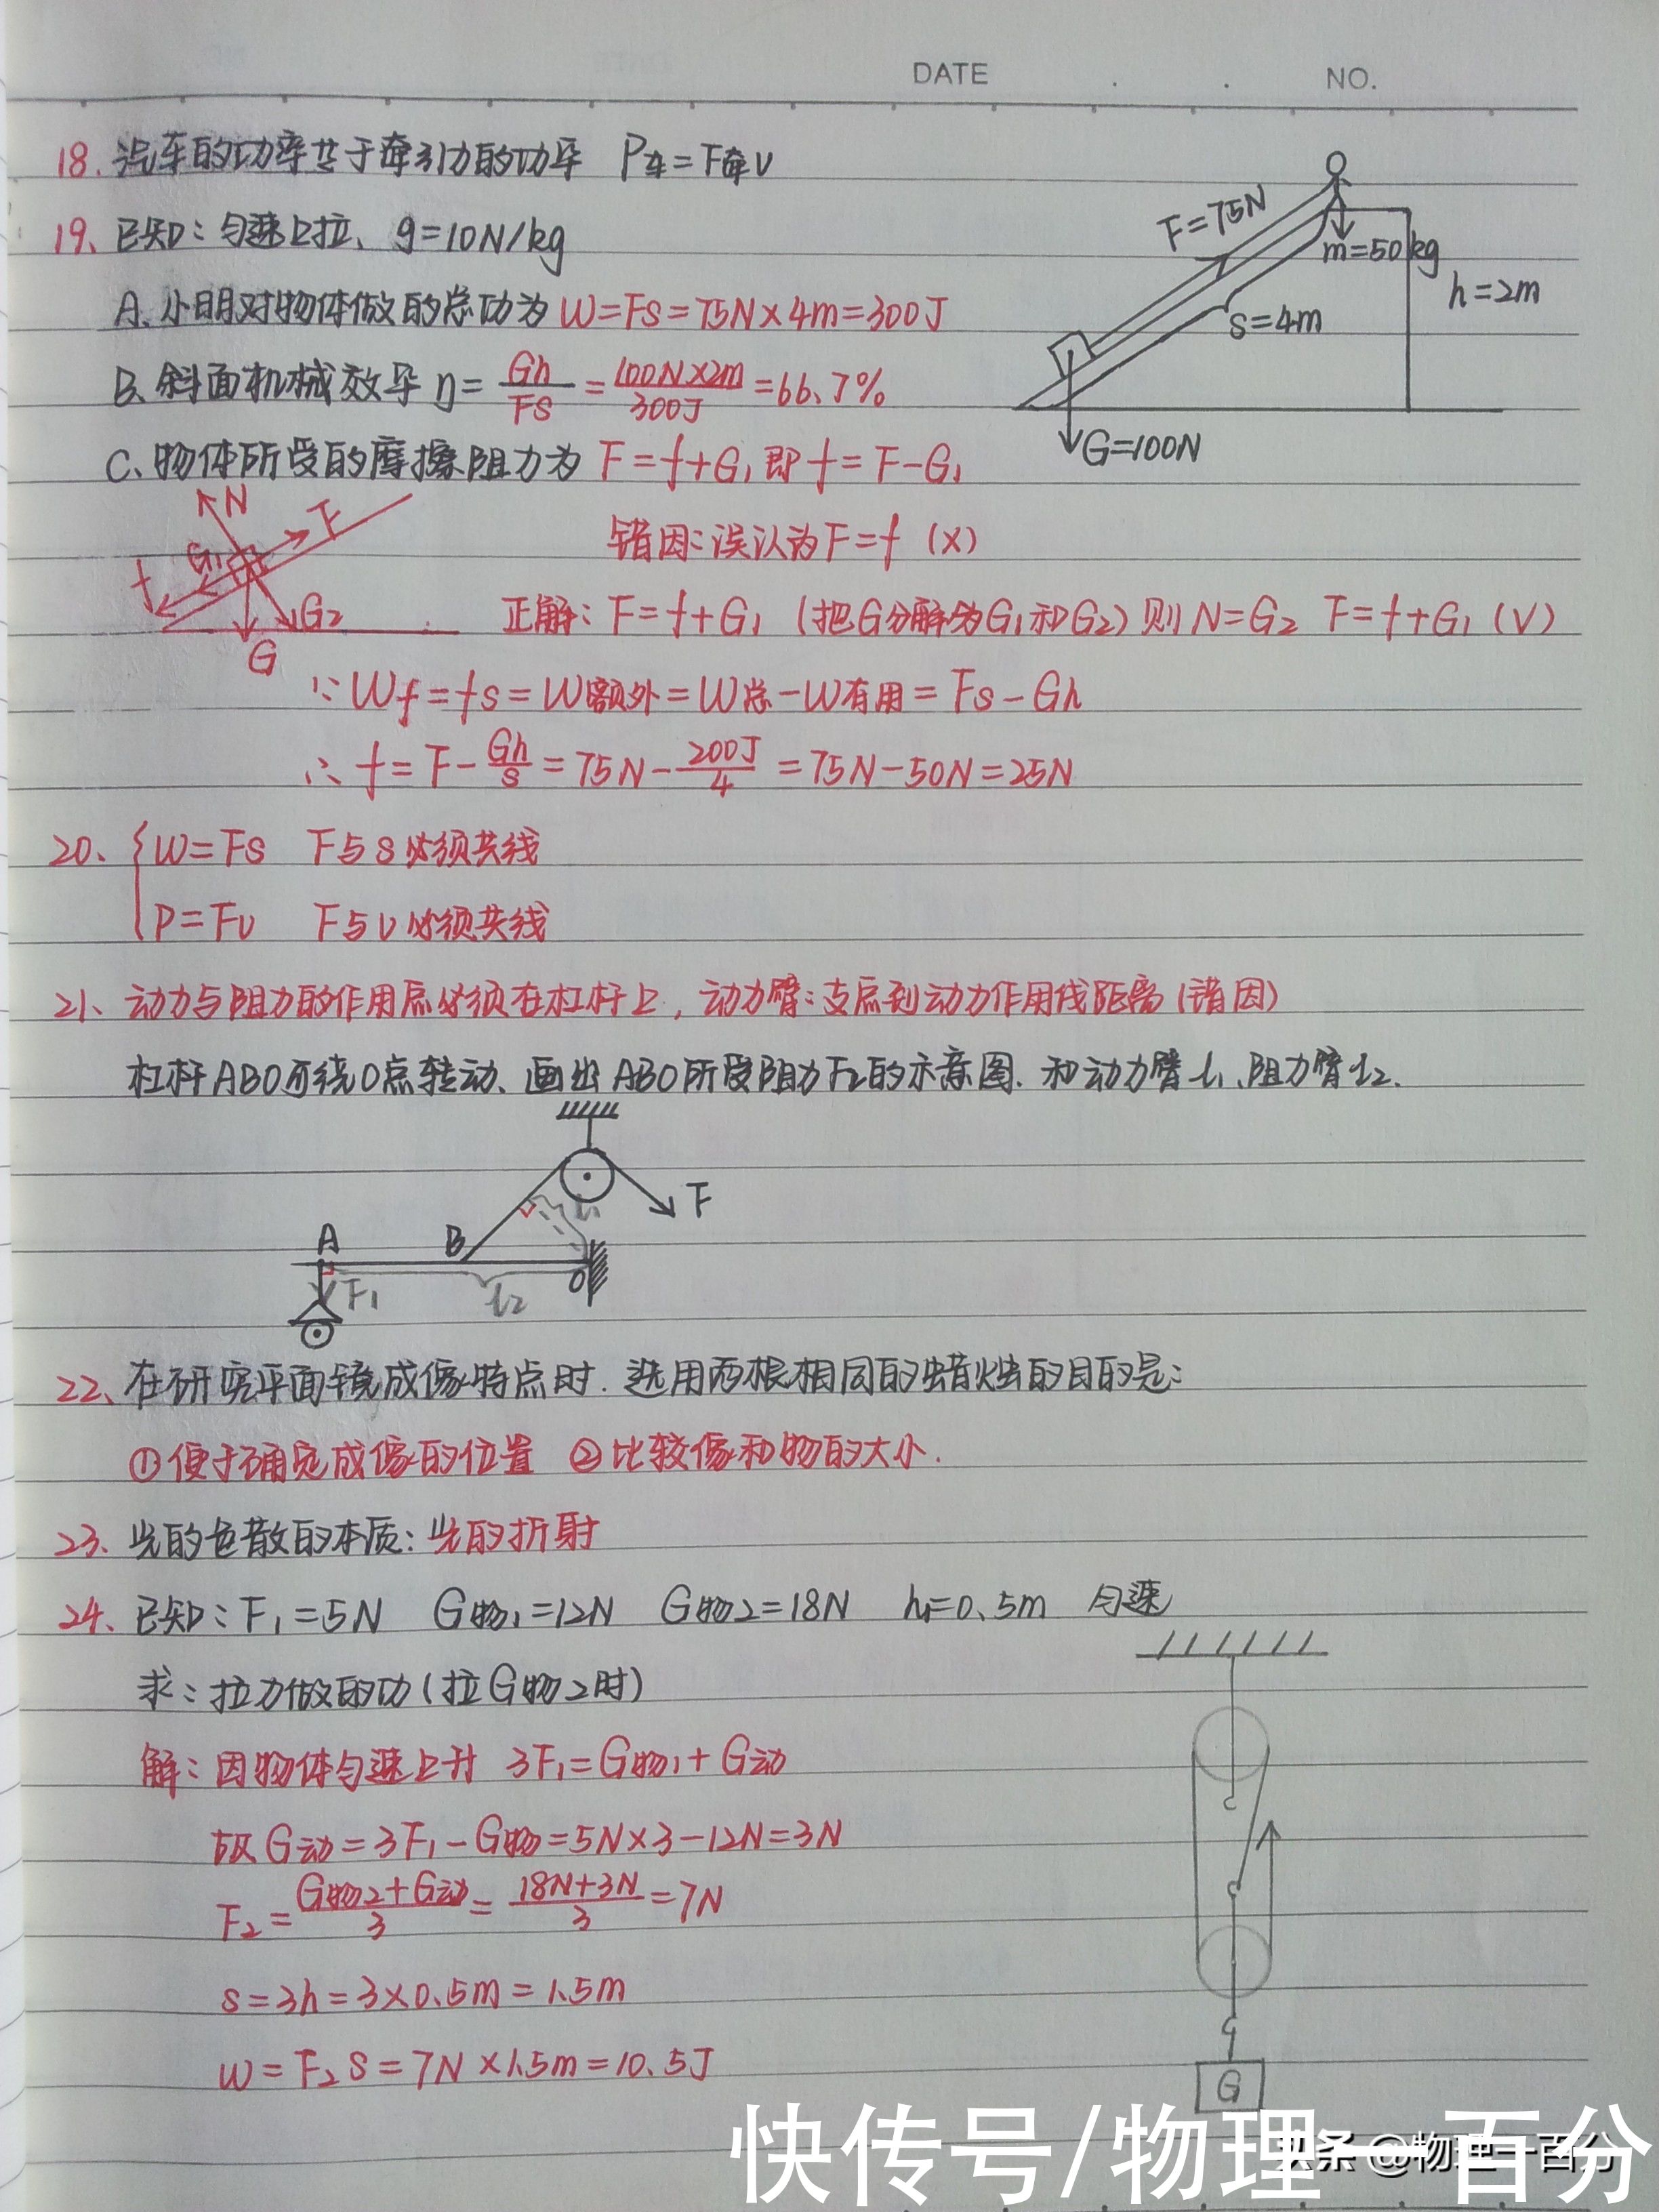 DATE . . NO.
18. 汽车的功率等于牵引力的功率 P车=F牵v
19、已知:匀速上拉、g=10N/kg
F=75N
m=50kg
h=2m
s=4m
G=100N
A、小明对物体做的总功为 W=Fs=75N×4m=300J
B、斜面机械效率 η=Gh/Fs=100N×2m/300J=66.7%
C、物体所受的摩擦阻力为 F=f+G₁即f=F-G₁
错因:误认为F=f (×)
N F G₁ f G₂ G
正解:F=f+G₁ (把G分解为G₁和G₂) 则N=G₂ F=f+G₁ (√)
∵Wf=fs=W额外=W总-W有用=Fs-Gh
∴f=F-Gh/s=75N-200J/4=75N-50N=25N
20、{W=Fs F与s必须共线
P=Fv F与v必须共线
21、动力与阻力的作用点必须在杠杆上,动力臂:支点到动力作用线距离(错因)
杠杆ABO可绕O点转动、画出ABO所受阻力F₂的示意图.和动力臂l₁、阻力臂l₂.
F
l₁
A B O
F₁ l₂
22、在研究平面镜成像特点时.选用两根相同的蜡烛的目的是:
①便于确定成像的位置 ②比较像和物的大小.
23、光的色散的本质:光的折射
24、已知:F₁=5N G物₁=12N G物₂=18N h=0.5m 匀速
求:拉力做的功(拉G物₂时)
解:因物体匀速上升 3F₁=G物₁+G动
故G动=3F₁-G物=5N×3-12N=3N
F₂=G物₂+G动/3=18N+3N/3=7N
s=3h=3×0.5m=1.5m
W=F₂s=7N×1.5m=10.5J
G
快传号/物理一百分
头条 @物理一百分